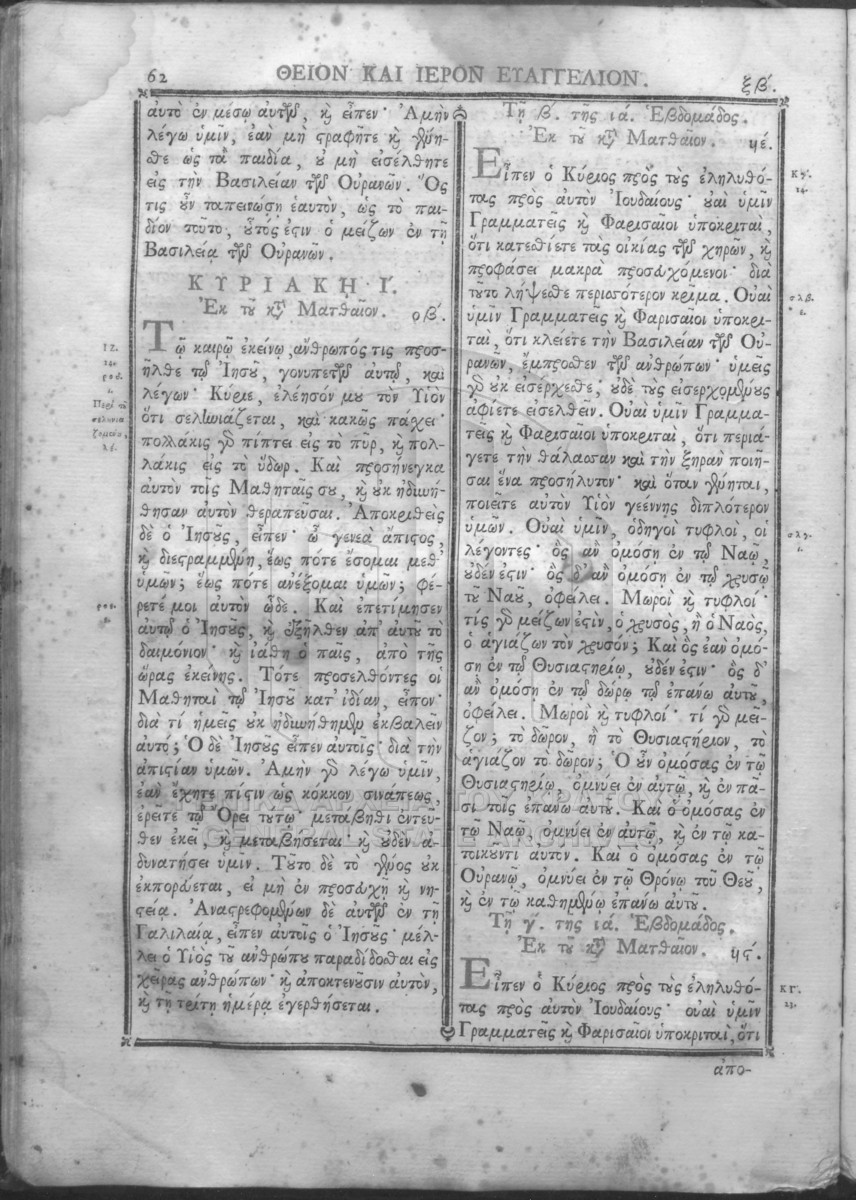 62 ΘΕΙΟΝ ΚΑΙ ΙΕΡΟΝ ΕΥΑΓΓΕΛΙΟΝ. ξβ΄.
αὐτὸ ἐν μέσῳ αὐτῶν, κỳ εἶπεν· Ἀμὴν
λέγω ὑμῖν, ἐὰν μὴ ϛραφῆτε κỳ γένη-
σθε ὡς τὰ παιδία, οὐ μὴ εἰσέλθητε
εἰς τὴν Βασιλείαν τῶν Οὐρανῶν. Ὅς
τις οὖν ταπεινώσῃ ἑαυτὸν, ὡς τὸ παι-
δίον τοῦτο, οὗτός ἐϛιν ὁ μείζων ἐν τῇ
Βασιλείᾳ τῶν Οὐρανῶν.
ΚΥΡΙΑΚΗ Ι΄.
Ἐκ τοῦ κατὰ Ματθαῖον. οβ΄.
Τῷ καιρῷ ἐκείνῳ, ἄνθρωπός τις προσ-
ῆλθε τῷ Ἰησοῦ, γονυπετῶν αὐτῷ, καὶ
λέγων· Κύριε, ἐλέησόν μου τὸν Υἱὸν
ὅτι σεληνιάζεται, καὶ κακῶς πάχει·
πολλάκις γὰρ πίπτει εἰς τὸ πῦρ, κỳ πολ-
λάκις εἰς τὸ ὕδωρ. Καὶ προσήνεγκα
αὐτὸν τοῖς Μαθηταῖς σου, κỳ οὐκ ἠδυνή-
θησαν αὐτὸν θεραπεῦσαι. Ἀποκριθεὶς
δὲ ὁ Ἰησοῦς, εἶπεν· ὦ γενεὰ ἄπιϛος,
κỳ διεϛραμμένη, ἕως πότε ἔσομαι μεθ'
ὑμῶν; ἕως πότε ἀνέξομαι ὑμῶν; φέ-
ρετέ μοι αὐτὸν ὧδε. Καὶ ἐπετίμησεν
αὐτῷ ὁ Ἰησοῦς, κỳ ἐξῆλθεν ἀπ' αὐτοῦ τὸ
δαιμόνιον· κỳ ἰάθη ὁ παῖς, ἀπὸ τῆς
ὥρας ἐκείνης. Τότε προσελθόντες οἱ
Μαθηταὶ τῷ Ἰησοῦ κατ' ἰδίαν, εἶπον·
διὰ τί ἡμεῖς οὐκ ἠδυνήθημεν ἐκβαλεῖν
αὐτό; Ὁ δὲ Ἰησοῦς εἶπεν αὐτοῖς· διὰ τὴν
ἀπιϛίαν ὑμῶν. Ἀμὴν γὰρ λέγω ὑμῖν,
ἐὰν ἔχητε πίϛιν ὡς κόκκον σινάπεως,
ἐρεῖτε τῷ Ὄρει τούτῳ· μετάβηθι ἐντεῦ-
θεν ἐκεῖ, κỳ μεταβήσεται· κỳ οὐδὲν ἀ-
δυνατήσει ὑμῖν. Τοῦτο δὲ τὸ γένος οὐκ
ἐκπορεύεται, εἰ μὴ ἐν προσευχῇ κỳ νη-
ϛείᾳ. Ἀναϛρεφομένων δὲ αὐτῶν ἐν τῇ
Γαλιλαίᾳ, εἶπεν αὐτοῖς ὁ Ἰησοῦς· μέλ-
λει ὁ Υἱὸς τοῦ ἀνθρώπου παραδίδοσθαι εἰς
χεῖρας ἀνθρώπων· κỳ ἀποκτενοῦσιν αὐτὸν,
κỳ τῇ τρίτῃ ἡμέρᾳ ἐγερθήσεται.
ΙΖ.
14.
ροδ.
Περὶ τοῦ
σεληνια
ζομένου.
Τῇ β΄. τῆς ιά. Ἑβδομάδος.
Ἐκ τοῦ κατὰ Ματθαῖον. ϟέ.
Εἶπεν ὁ Κύριος πρὸς τοὺς ἐληλυθό-
τας πρὸς αὐτὸν Ἰουδαίους· οὐαὶ ὑμῖν
Γραμματεῖς κỳ Φαρισαῖοι ὑποκριταὶ,
ὅτι κατεσθίετε τὰς οἰκίας τῶν χηρῶν, κỳ
προφάσει μακρὰ προσευχόμενοι· διὰ
τοῦτο λήψεσθε περισσότερον κρῖμα. Οὐαὶ
ὑμῖν Γραμματεῖς κỳ Φαρισαῖοι ὑποκρι-
ταὶ, ὅτι κλείετε τὴν Βασιλείαν τῶν Οὐ-
ρανῶν, ἔμπροσθεν τῶν ἀνθρώπων· ὑμεῖς
γὰρ οὐκ εἰσέρχεσθε, οὐδὲ τοὺς εἰσερχομένους
ἀφίετε εἰσελθεῖν. Οὐαὶ ὑμῖν Γραμμα-
τεῖς κỳ Φαρισαῖοι ὑποκριταὶ, ὅτι περιά-
γετε τὴν θάλασσαν καὶ τὴν ξηρὰν ποιῆ-
σαι ἕνα προσήλυτον· καὶ ὅταν γένηται,
ποιεῖτε αὐτὸν Υἱὸν γεέννης διπλότερον
ὑμῶν. Οὐαὶ ὑμῖν, ὁδηγοὶ τυφλοὶ, οἱ
λέγοντες· ὃς ἂν ὀμόσῃ ἐν τῷ Ναῷ,
οὐδέν ἐϛιν· ὃς δ' ἂν ὀμόσῃ ἐν τῷ χρυσῷ
τοῦ Ναοῦ, ὀφείλει. Μωροὶ κỳ τυφλοί·
τίς γὰρ μείζων ἐϛὶν, ὁ χρυσὸς, ἢ ὁ Ναὸς,
ὁ ἁγιάζων τὸν χρυσόν; Καὶ ὃς ἐὰν ὀμό-
σῃ ἐν τῷ Θυσιαϛηρίῳ, οὐδέν ἐϛιν· ὃς δ'
ἂν ὀμόσῃ ἐν τῷ δώρῳ τῷ ἐπάνω αὐτοῦ,
ὀφείλει. Μωροὶ κỳ τυφλοί· τί γὰρ μεῖ-
ζον; τὸ δῶρον, ἢ τὸ Θυσιαϛήριον, τὸ
ἁγιάζον τὸ δῶρον; Ὁ οὖν ὀμόσας ἐν τῷ
Θυσιαϛηρίῳ, ὀμνύει ἐν αὐτῷ, κỳ ἐν πᾶ-
σι τοῖς ἐπάνω αὐτοῦ. Καὶ ὁ ὀμόσας ἐν
τῷ Ναῷ, ὀμνύει ἐν αὐτῷ, κỳ ἐν τῷ κα-
τοικοῦντι αὐτόν. Καὶ ὁ ὀμόσας ἐν τῷ
Οὐρανῷ, ὀμνύει ἐν τῷ Θρόνῳ τοῦ Θεοῦ,
κỳ ἐν τῷ καθημένῳ ἐπάνω αὐτοῦ.
Τῇ γ΄. τῆς ιά. Ἑβδομάδος.
Ἐκ τοῦ κατὰ Ματθαῖον. ϟϛ΄.
Εἶπεν ὁ Κύριος πρὸς τοὺς ἐληλυθό-
τας πρὸς αὐτὸν Ἰουδαίους· οὐαὶ ὑμῖν
Γραμματεῖς κỳ Φαρισαῖοι ὑποκριταὶ, ὅτι
ἀπο-
σλβ.
σλγ.
ΚΓ.
GENERAL STATE ARCHIVES